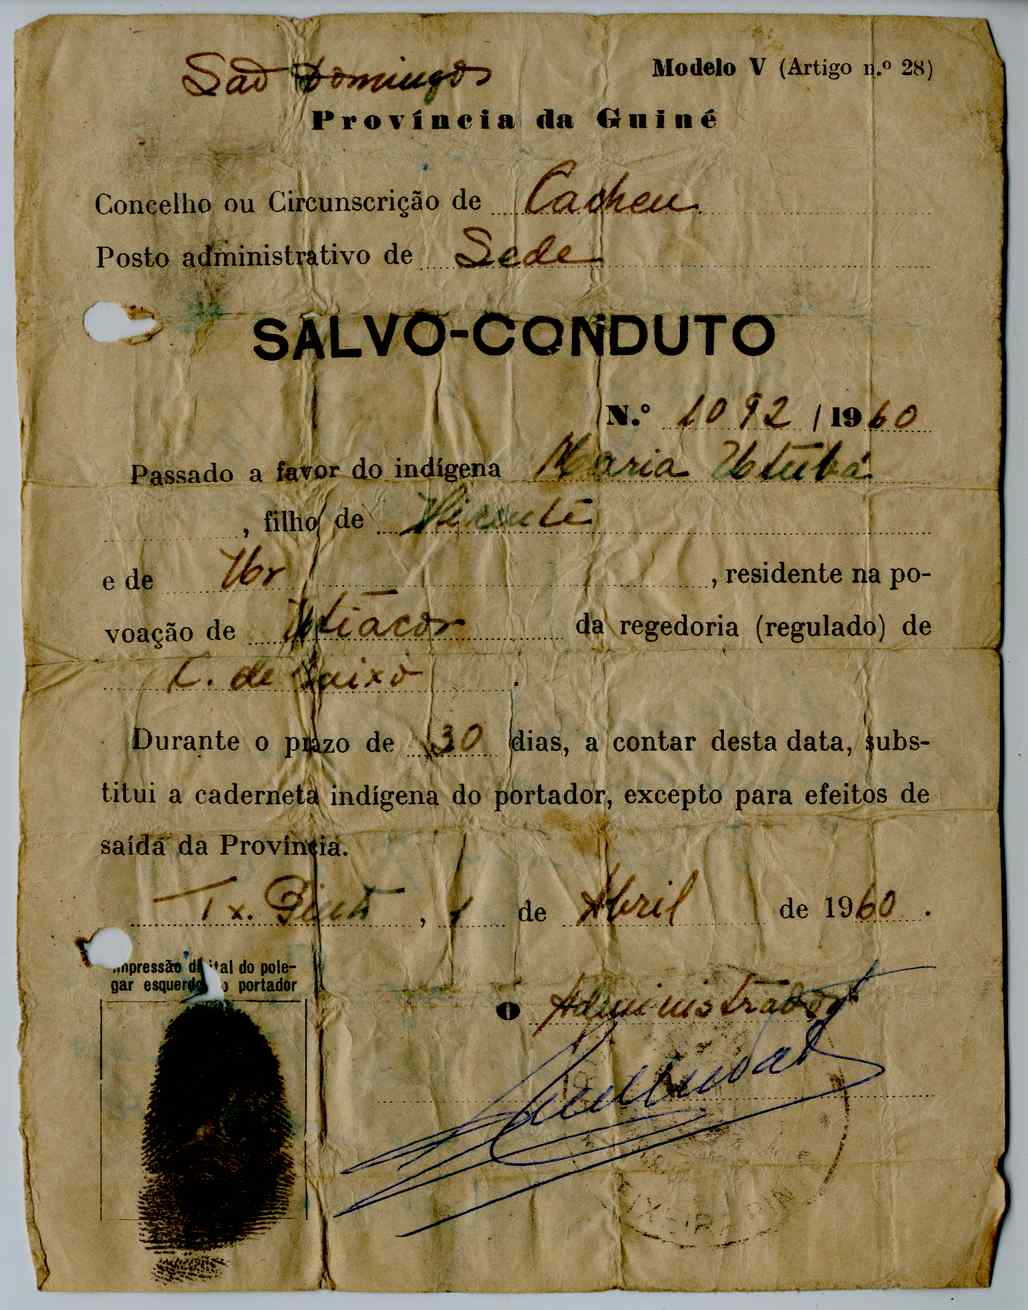 São Domingos
Modelo V (Artigo n.º 28)
Província da Guiné
Concelho ou Circunscrição de Cacheu
Posto administrativo de Sede
SALVO-CONDUTO
N.º 1092/1960
Passado a favor do indígena Maria
, filho de Vicente
e de , residente na po-
voação de da regedoria (regulado) de
C. de Baixo .
Durante o prazo de 30 dias, a contar desta data, subs-
titui a caderneta indígena do portador, excepto para efeitos de
saída da Província.
Tx. Pinto, 1 de Abril de 1960.
Impressão digital do pole-
gar esquerdo do portador
O Administrador